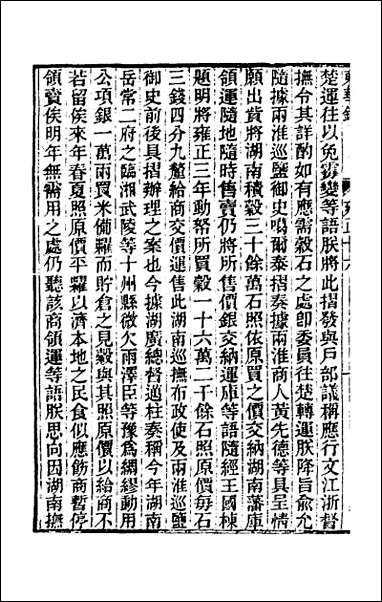 楚運往以免霉變等語朕將此摺發與戶部議稱應行文江浙督
撫令其詳酌如有應需穀石之處即委員往楚轉運朕降旨兪允
隨據兩淮巡鹽御史噶爾泰摺奏據兩淮商人黃先德等具呈情
願出貲將湖南積穀三十餘萬石照依原買之價交納湖南藩庫
領運隨地隨時售賣仍將所售價銀交納運庫等語隨經王國棟
題明將雍正三年動帑所買穀一十六萬二千餘石照原價每石
三錢四分九釐給商交價運售此湖南巡撫布政使及兩淮巡鹽
御史前後具摺辦理之案也今據湖廣總督邁柱奏稱今年湖南
岳常二府之臨湘武陵等十州縣微欠雨澤臣等豫爲綢繆動用
公項銀一萬兩買米備糶而貯倉之見穀與其照原價以給商不
若留俟來年春夏照原價平糶以濟本地之民食似應飭商暫停
領賣俟明年無需用之處仍聽該商領運等語朕思向因湖南撫